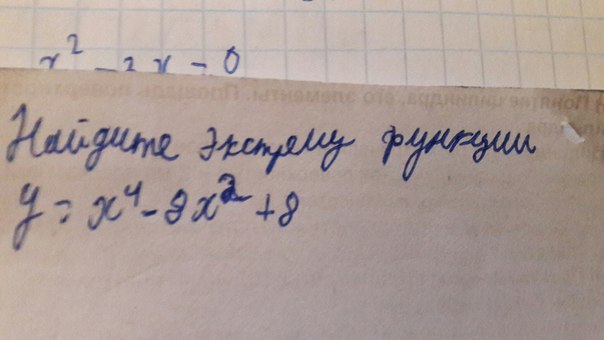 x² - 2x = 0
Понятие цилиндра, его элементы. Площадь поверхност
Найдите экстрему функции
y = x⁴ - 8x² + 8